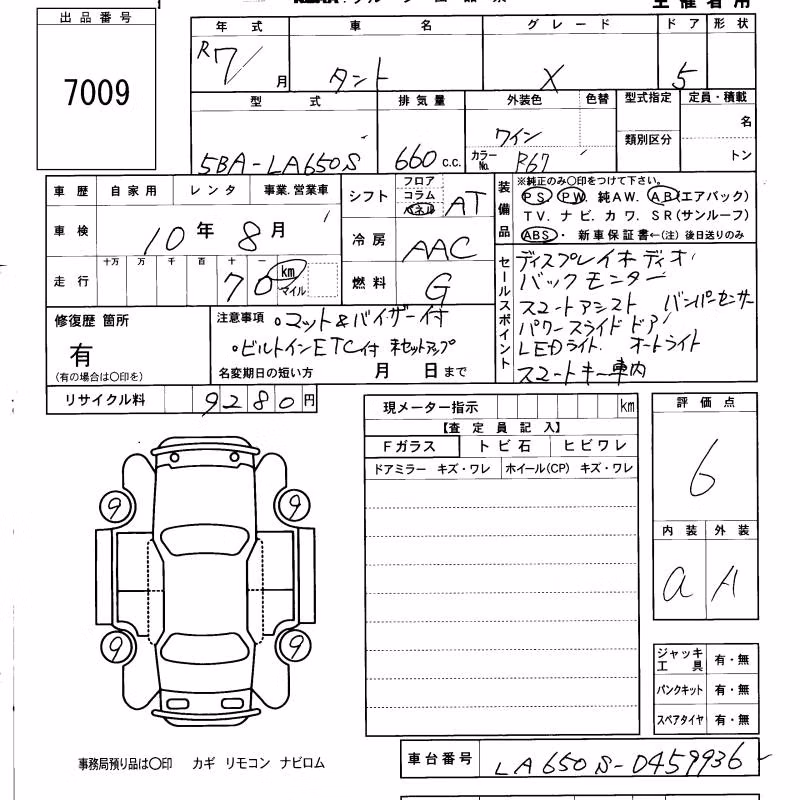 出品番号
7009
年 式 車 名 グ レ ー ド ド ア 形 状
R7/ 月 タント X 5
型 式 排 気 量 外装色 色替 型式指定 定員・積載
類別区分
5BA-LA650S 660 C.C. ワイン カラーNo. R67 名
トン
車 歴 自 家 用 レ ン タ 事業.営業車
車 検 10 年 8 月
走 行 十万 万 千 百 十 一 km マイル
70
シフト フロア コラム パネル AT
冷 房 AAC
燃 料 G
装備品
※純正のみ〇印をつけて下さい。
PS PW. 純AW. AB(エアバック)
TV. ナ ビ. カ ワ. SR(サンルーフ)
ABS ・ 新 車 保 証 書 ←(注) 後日送りのみ
セールスポイント
ディスプレイオーディオ
バックモニター
スマートアシスト バンパーセンサー
パワースライドドア
LEDライト. オートライト
スマートキー車内
修復歴 箇所
有
(有の場合は〇印を)
注意事項 。マット&バイザー付
。ビルトインETC付 未セットアップ
名変期日の短い方 月 日 まで
リサイクル料 9280 円
現メーター指示 km
【査 定 員 記 入】
Fガラス ト ビ 石 ヒ ビ ワ レ
ドアミラー キズ・ワレ ホイール(CP) キズ・ワレ
評 価 点
6
内 装 外 装
a A
9 9
9 9
ジャッキ
工 具 有・無
パンクキット 有・無
スペアタイヤ 有・無
事務局預り品は〇印 カギ リモコン ナビロム
車台番号 LA650S-0459936